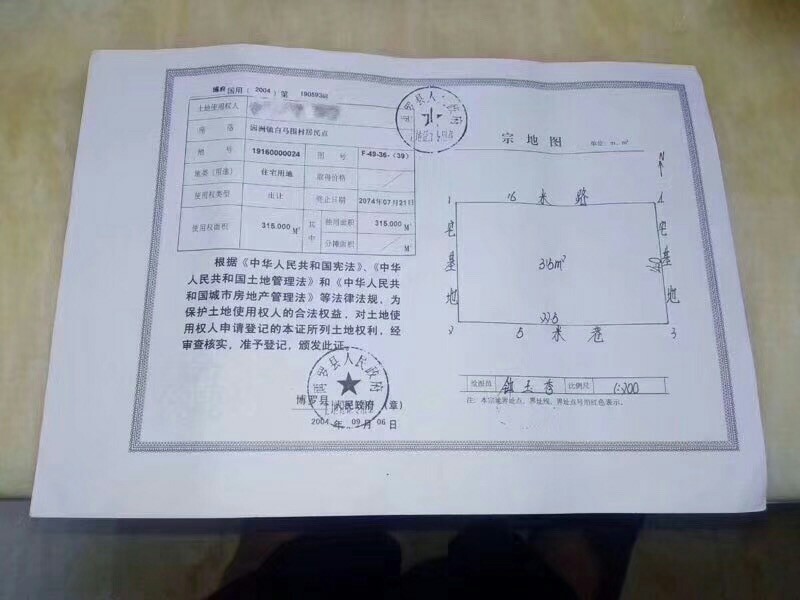 博府国用（2004）第 190593 号
土地使用权人
座 落 园洲镇白马围村居民点
地 号 19160000024 图 号 F-49-36-（39）
地类（用途） 住宅用地 取得价格
使用权类型 出让 终止日期 2074年07月21日
使用权面积 315.000 M² 其中 独用面积 315.000 M²
分摊面积 M²
根据《中华人民共和国宪法》、《中华
人民共和国土地管理法》和《中华人民共和
国城市房地产管理法》等法律法规，为
保护土地使用权人的合法权益，对土地使
用权人申请登记的本证所列土地权利，经
审查核实，准予登记，颁发此证。
博罗县人民政府
博罗县 人民政府 （章）
2004 年 09 月 06 日
宗 地 图
单位：m、m²
N
1 16 米 路 4
宅基地
315m²
宅基地
22.5
2 5 米 巷 3
绘图员 比例尺 1:200
注：本宗地界址点、界址线、界址点号用红色表示。